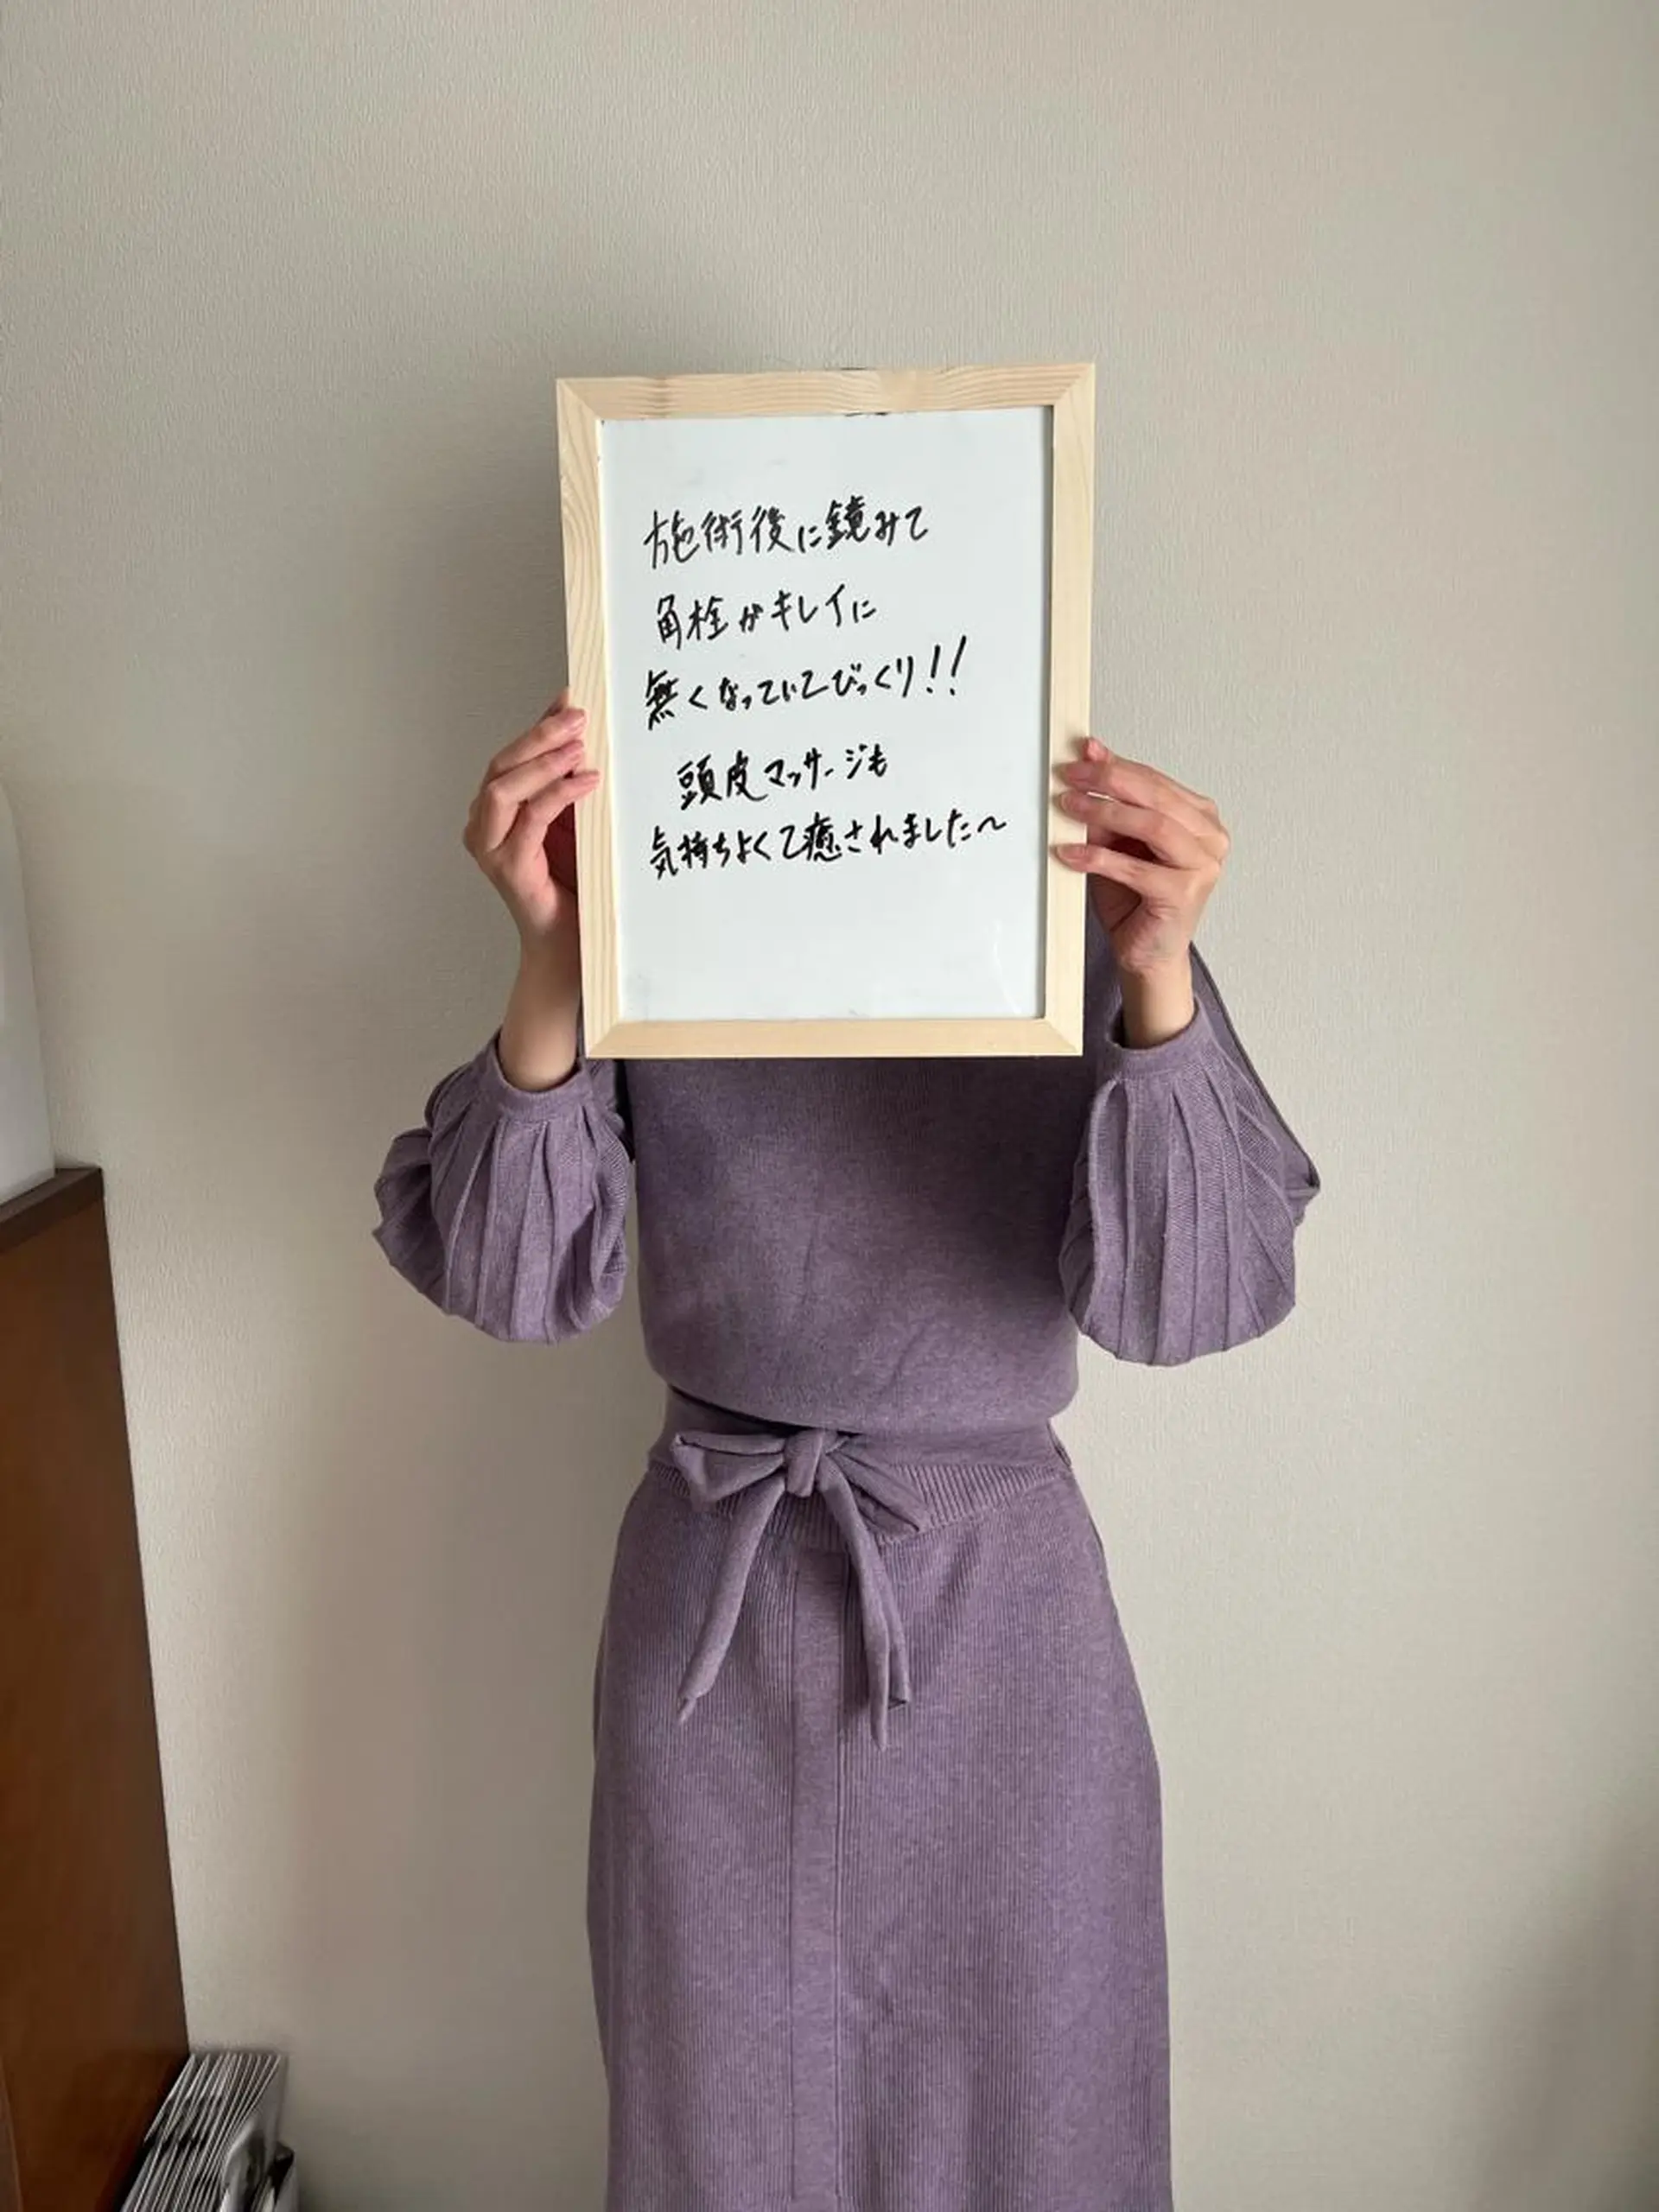 施術後に鏡みて
角栓がキレイに
無くなっていてびっくり!!
頭皮マッサージも
気持ちよくて癒されました〜